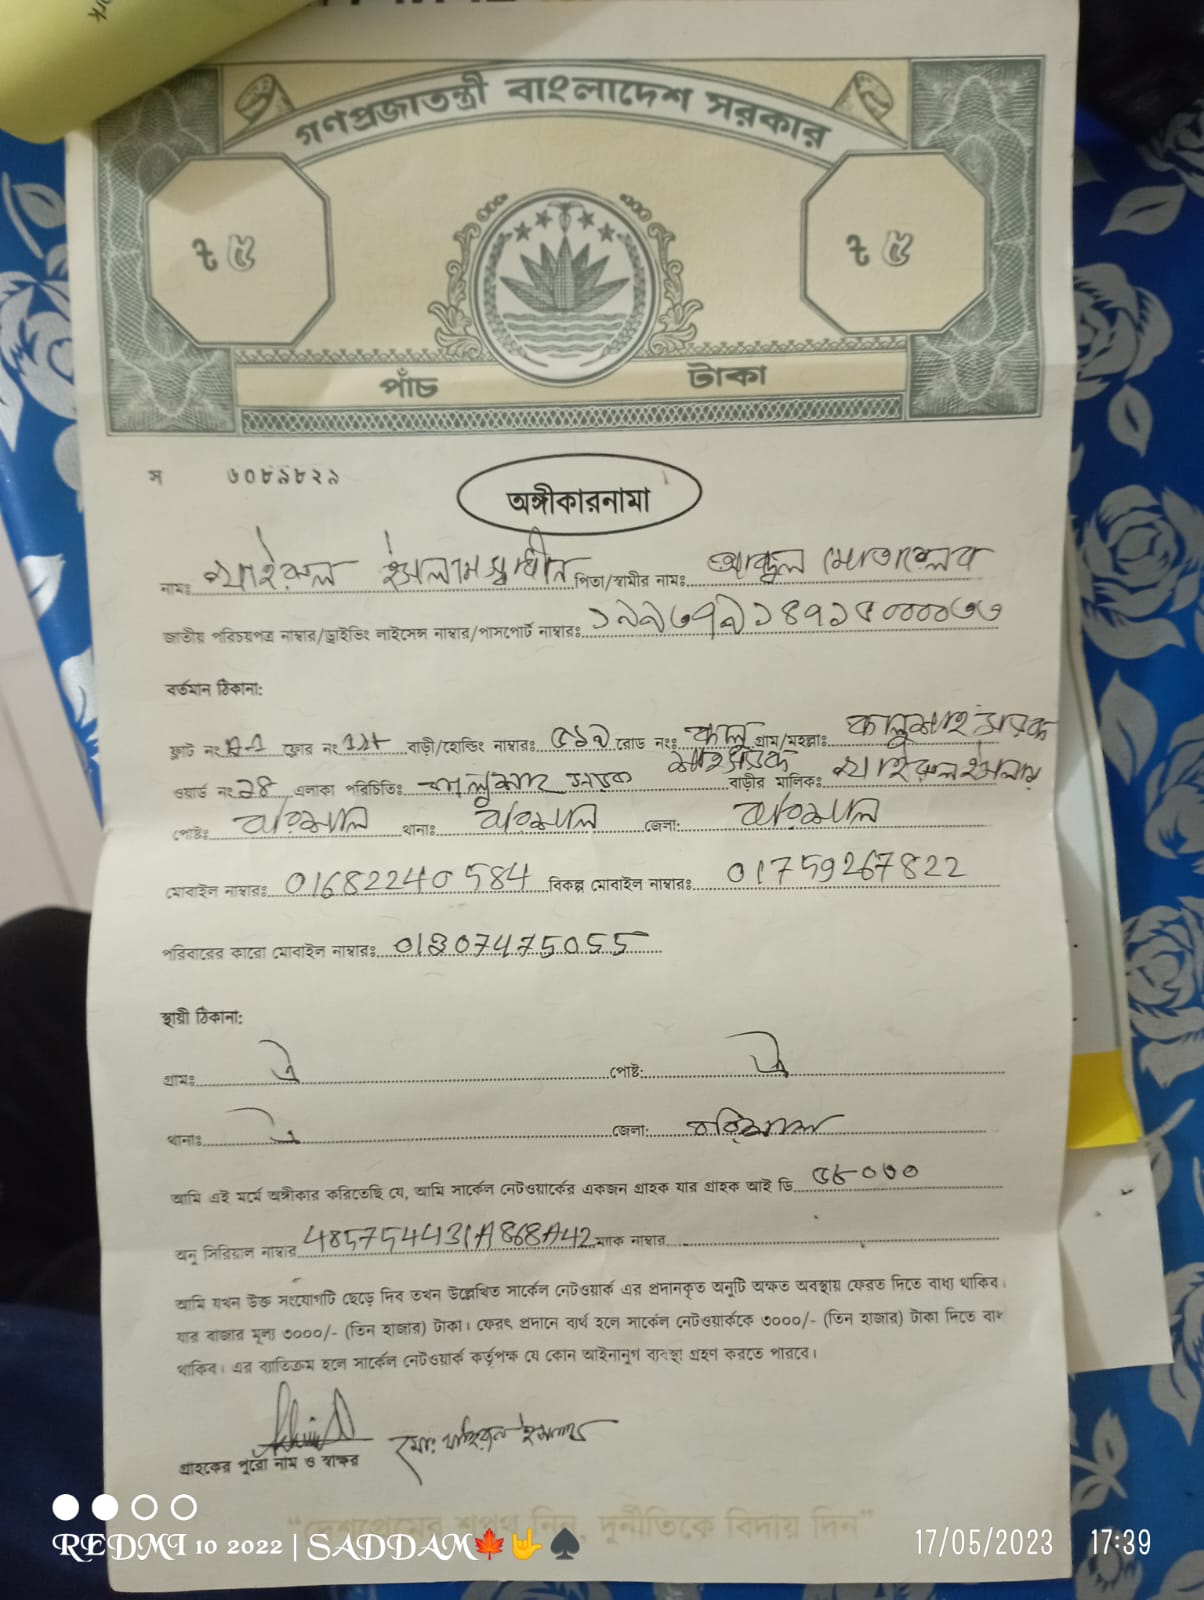 গণপ্রজাতন্ত্রী বাংলাদেশ সরকার
৳ ৫ ৳ ৫
পাঁচ টাকা
স ৬০৮৯৮২৯
অঙ্গীকারনামা
নামঃ খাইরুল ইসলাম স্বাধীন পিতা/স্বামীর নামঃ আব্দুল মোতালেব
জাতীয় পরিচয়পত্র নাম্বার/ড্রাইভিং লাইসেন্স নাম্বার/পাসপোর্ট নাম্বারঃ
বর্তমান ঠিকানা:
ফ্লাট নং A-1 ফ্লোর নং 1st বাড়ী/হোল্ডিং নাম্বারঃ ৫১৯ রোড নং কালু শাহ সড়ক গ্রাম/মহল্লাঃ কালুশাহ সড়ক
ওয়ার্ড নং এলাকা পরিচিতিঃ কালুশাহ সড়ক বাড়ীর মালিকঃ খাইরুল ইসলাম
পোষ্টঃ বরিশাল থানাঃ বরিশাল জেলা: বরিশাল
মোবাইল নাম্বারঃ 01682240584 বিকল্প মোবাইল নাম্বারঃ 01759267822
পরিবারের কারো মোবাইল নাম্বারঃ 01307475055
স্থায়ী ঠিকানা:
গ্রামঃ ঐ পোষ্ট: ঐ
থানাঃ ঐ জেলা: বরিশাল
আমি এই মর্মে অঙ্গীকার করিতেছি যে, আমি সার্কেল নেটওয়ার্কের একজন গ্রাহক যার গ্রাহক আই ডি ৫৮০৩০
অনু সিরিয়াল নাম্বার 485754431A868A42 ম্যাক নাম্বার
আমি যখন উক্ত সংযোগটি ছেড়ে দিব তখন উল্লেখিত সার্কেল নেটওয়ার্ক এর প্রদানকৃত অনুটি অক্ষত অবস্থায় ফেরত দিতে বাধ্য থাকিব।
যার বাজার মূল্য ৩০০০/- (তিন হাজার) টাকা। ফেরৎ প্রদানে ব্যর্থ হলে সার্কেল নেটওয়ার্ককে ৩০০০/- (তিন হাজার) টাকা দিতে বাধ্য
থাকিব। এর ব্যতিক্রম হলে সার্কেল নেটওয়ার্ক কর্তৃপক্ষ যে কোন আইনানুগ ব্যবস্থা গ্রহণ করতে পারবে।
মো: খাইরুল ইসলাম
গ্রাহকের পুরো নাম ও স্বাক্ষর
"দেশপ্রেমের শপথ নিন, দুর্নীতিকে বিদায় দিন"
REDMI 10 2022 | SADDAM🍁🤟♠ 17/05/2023 17:39